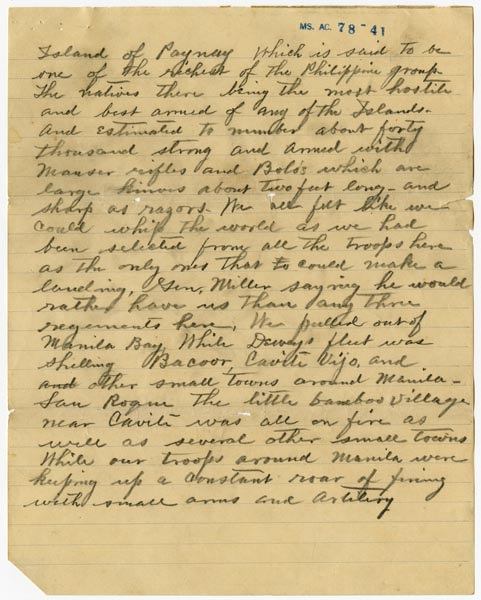 MS. AC. 78-41
Island of Paynay Which is said to be
one of the richest of the Philippine group
The natives there being the most hostile
and best armed of any of the Islands.
And Estimated to number about forty
thousand strong and armed with
Mauser rifles and Bolos which are
large knives about two feet long - and
sharp as razors. We all felt like we
could whip the world as we had
been selected from all the troops here
as the only ones that to could make a
landing, Gen, Miller saying he would
rather have us than any three
regements here, We pulled out of
Manila Bay, While Deweys fleet was
shelling Bacoor, Cavite Vijo, and
and other small towns around Manila -
San Roque the little bamboo village
near Cavite was all on fire as
well as several other small towns
While our troops around Manila were
keeping up a constant roar of firing
with small arms and Artilery